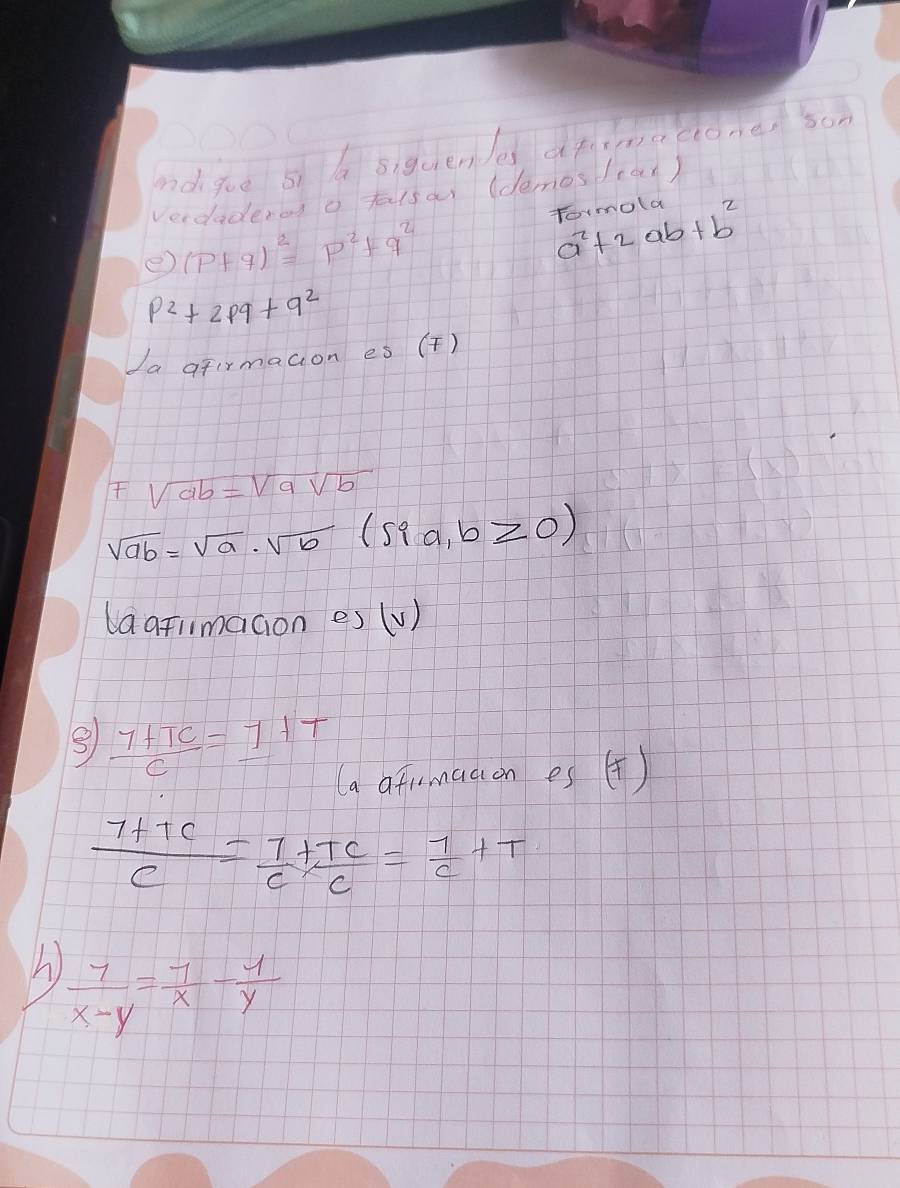 indique si la siguientes afirmaciones son
verdaderas o falsas (demostrar)
Formola
a²+2ab+b²
e) (p+q)² = p²+q²
p²+2pq+q²
La afirmacion es (F)
F √ab = √a √b
√ab = √a . √b (si a, b ≥ 0)
La afirmacion es (v)
g) 1+TC/C = 1+T
La afirmacion es (F)
1+TC/C = 1/C + TC/C = 1/C + T
h) 1/x-y = 1/x - 1/y